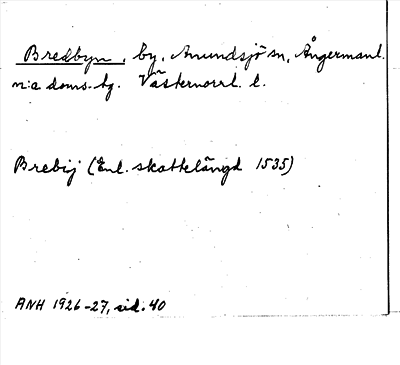 Bredbyn, by, Anundsjö sn, Ångermanl.
n:a doms. tg. Västernorrl. l.
Brebij (Enl. skattelängd 1535)
ANH 1926-27, sid. 40